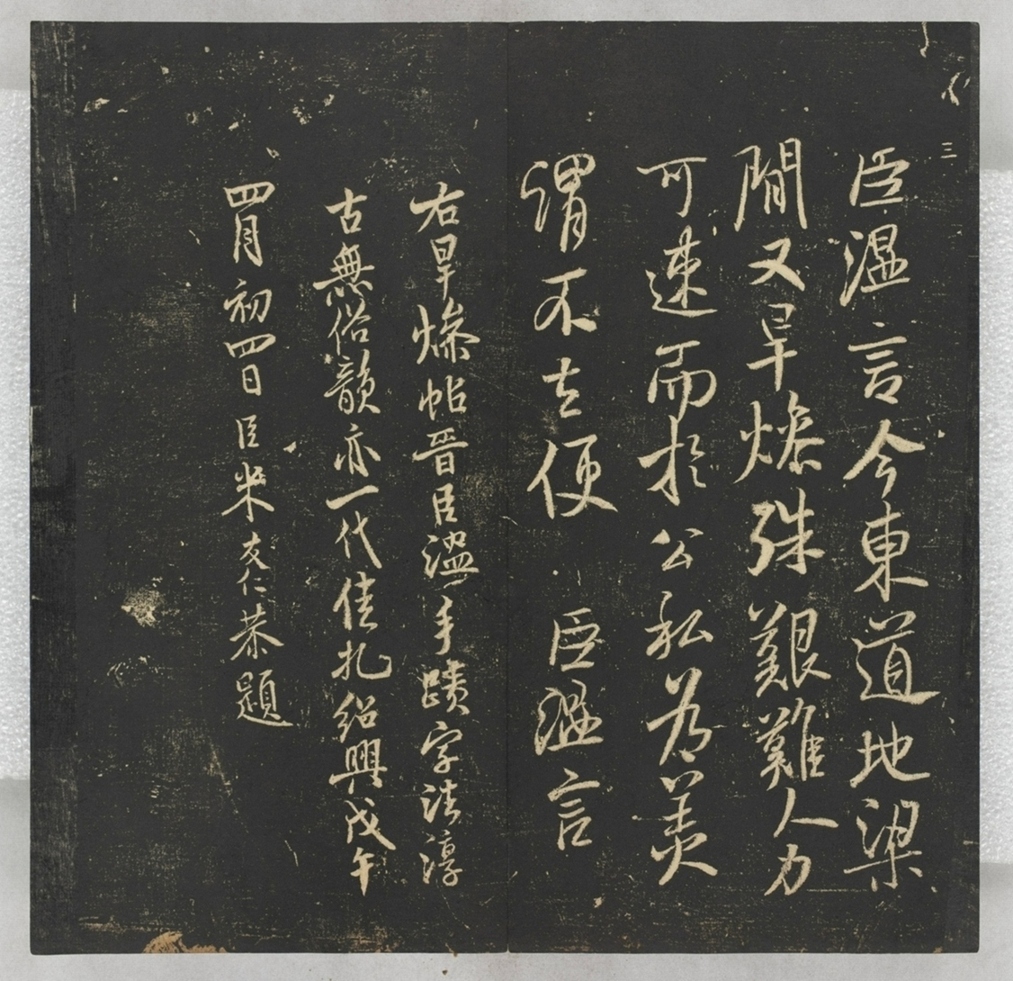 三
臣溫言今東道地梁
間又旱燥殊艱難人力
可速而於公私為美
謂不去便　臣溫言
右旱燥帖晉臣溫手蹟字法淳
古無俗韻亦一代佳札紹興戊午
四月初四日臣米友仁恭題